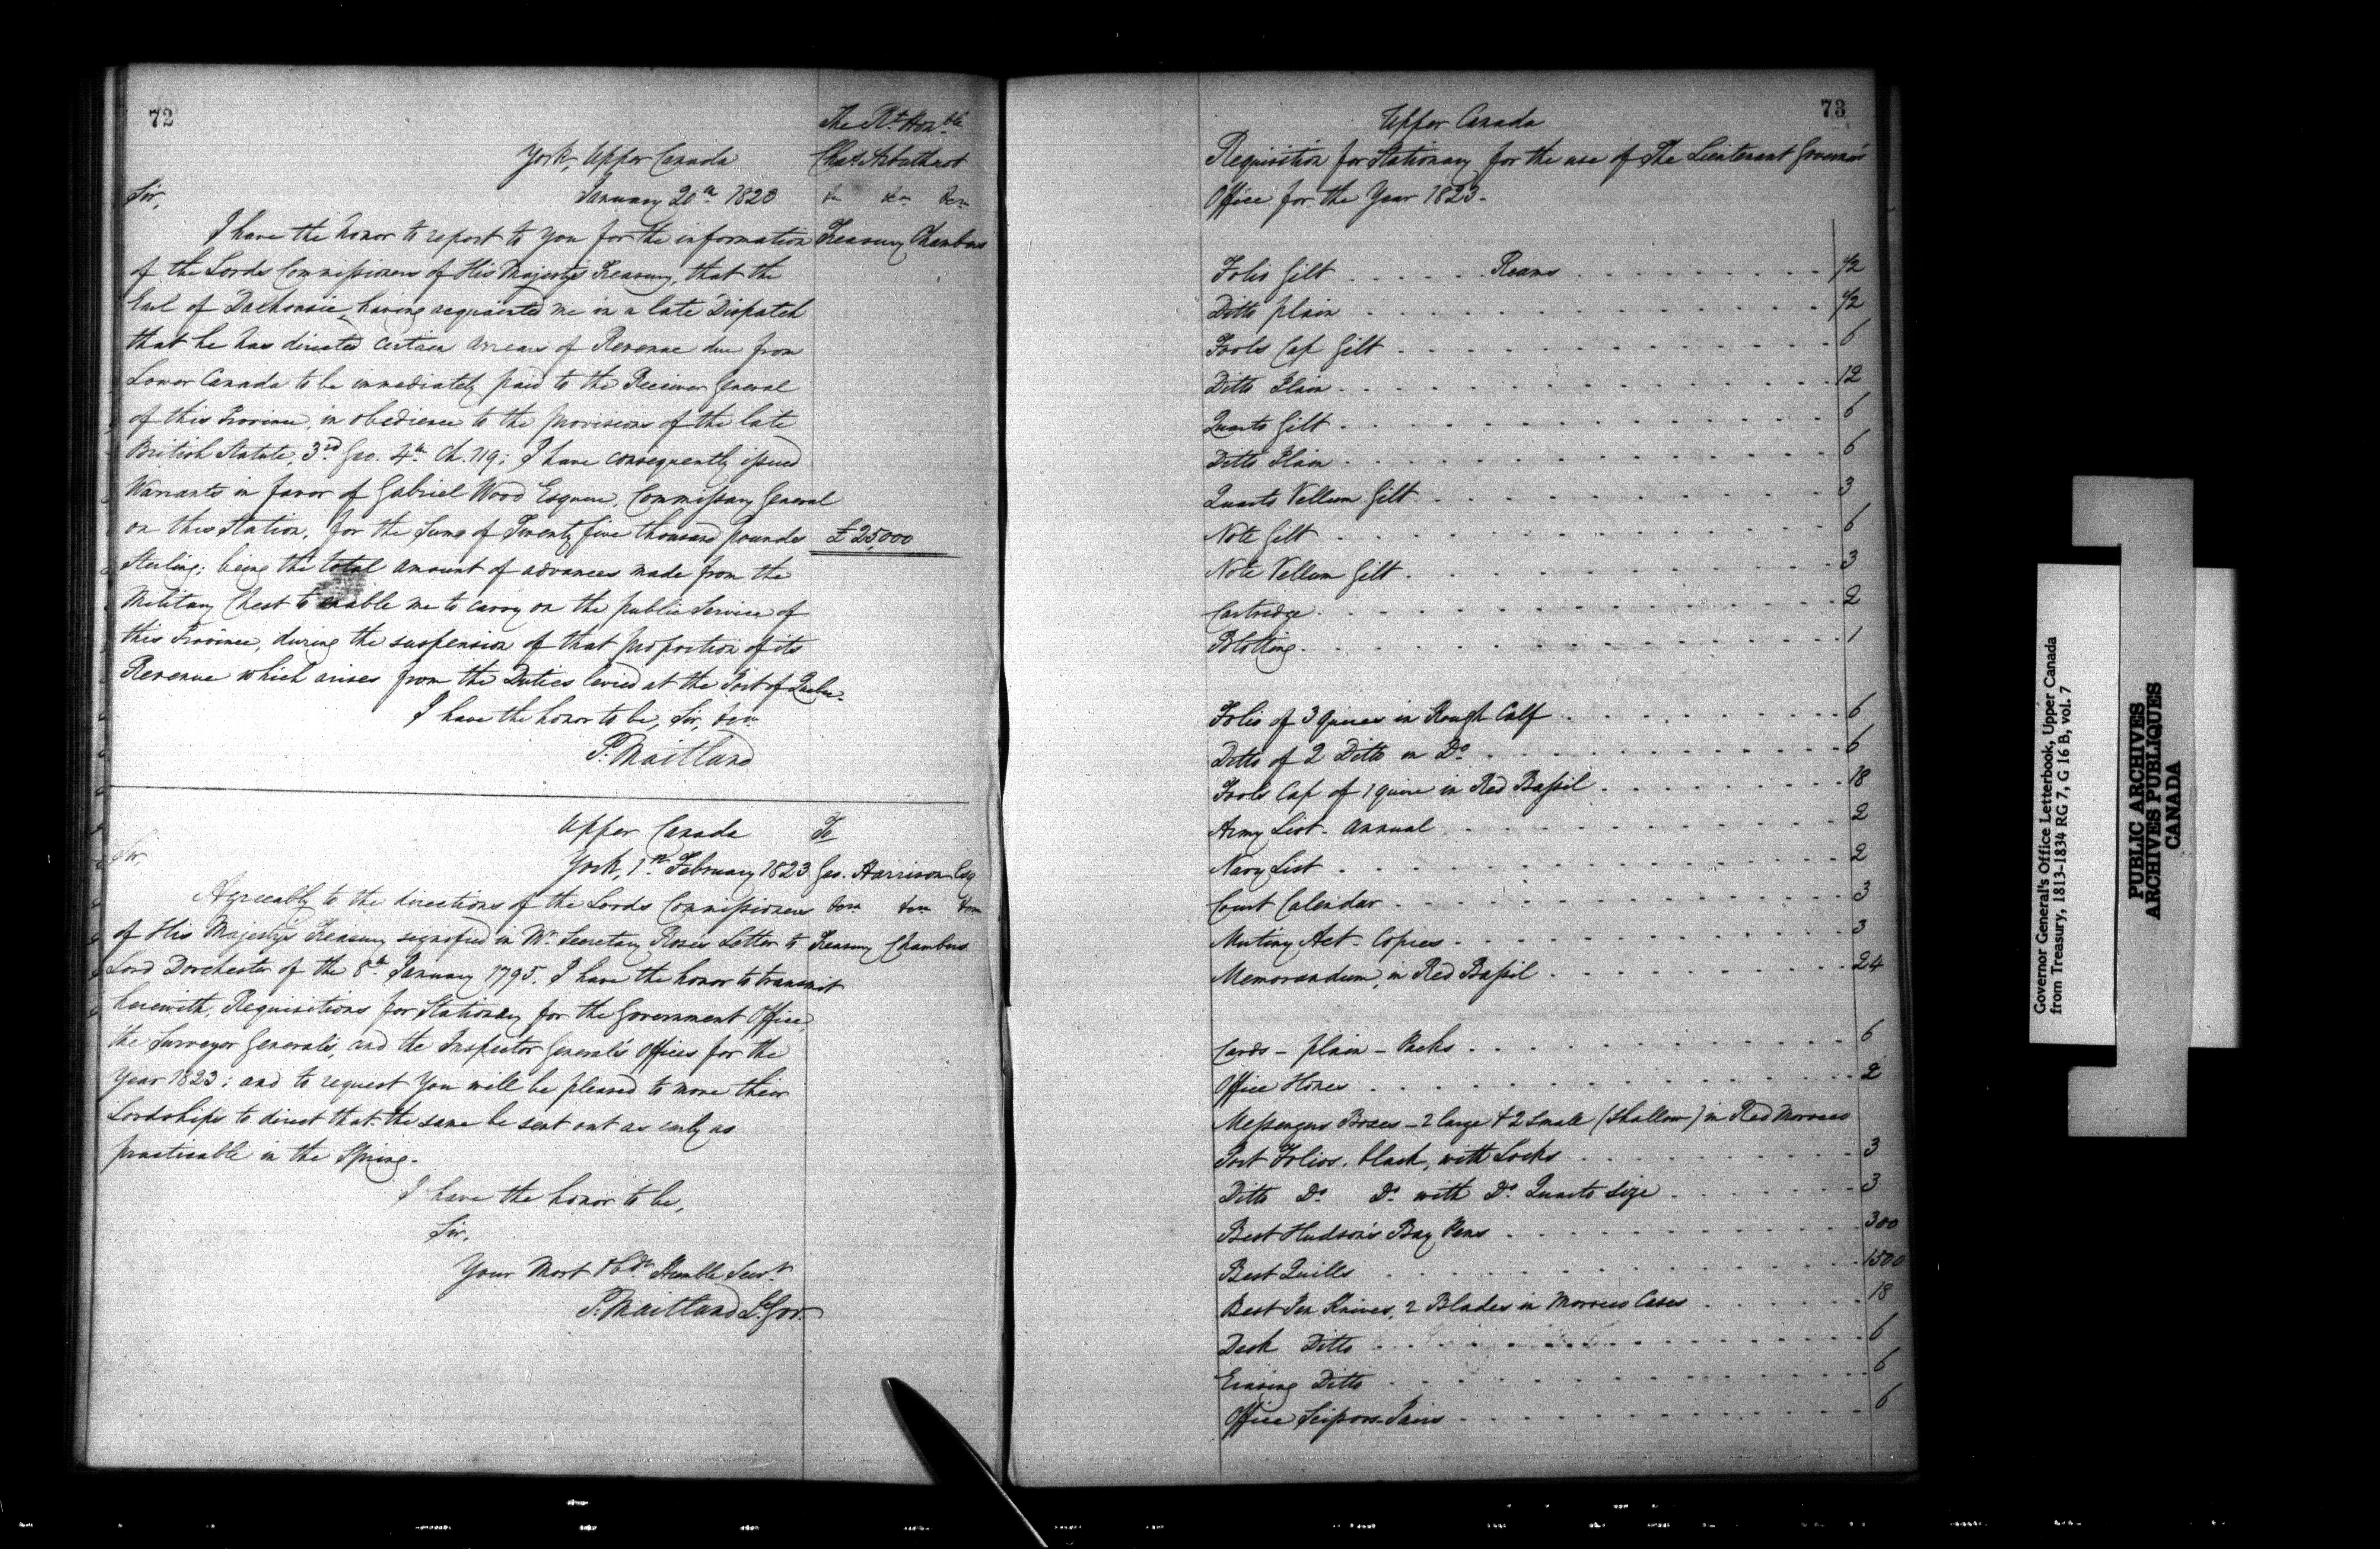 72
The Rt. Honble
Chas Arbuthnot
&c &c &c
Treasury Chambers
York, Upper Canada
January 20th 1823
Sir,
I have the honor to report to You for the information
of the Lords Commissioners of His Majesty's Treasury, that the
Earl of Dalhousie, having acquainted me in a late Dispatch
that he has directed certain Arrears of Revenue due from
Lower Canada to be immediately paid to the Receiver General
of this Province, in obedience to the provisions of the late
British Statute, 3rd Geo. 4th Ch. 119; I have consequently issued
Warrants in favor of Gabriel Wood Esquire, Commissary General
on this Station, for the Sum of Twenty five thousand pounds £25,000
Sterling; being the total amount of advances made from the
Military Chest to enable me to carry on the public Service of
this Province, during the suspension of that proportion of its
Revenue which arises from the Duties levied at the Port of Quebec.
I have the honor to be, Sir, &c
P. Maitland
Upper Canada
York, 1st February 1823
To
Geo. Harrison Esq
&c &c &c
Treasury Chambers
Sir,
Agreeably to the directions of the Lords Commissioners
of His Majesty's Treasury signified in Mr Secretary Rose's Letter to
Lord Dorchester of the 8th January 1795. I have the honor to transmit
herewith, Requisitions for Stationary for the Government Office,
the Surveyor General's, and the Inspector General's Offices for the
Year 1823; and to request You will be pleased to move their
Lordships to direct that the same be sent out as early as
practicable in the Spring.
I have the honor to be,
Sir,
Your Most Obdt Humble Servt
P. Maitland Lt. Gov.
73
Upper Canada
Requisition for Stationary for the use of The Lieutenant Governor's
Office for the Year 1823.
Folio Gilt . . . . . Reams . . . . . 1/2
Ditto plain . . . . . 1/2
Fools Cap Gilt . . . . . 6
Ditto Plain . . . . . 12
Quarto Gilt . . . . . 6
Ditto Plain . . . . . 6
Quarto Vellum Gilt . . . . . 3
Note Gilt . . . . . 6
Note Vellum Gilt . . . . . 3
Cartridge . . . . . 2
Blotting . . . . . 1
Folio of 3 quires in Rough Calf . . . . . 6
Ditto of 2 Ditto in Do . . . . . 6
Fools Cap of 1 quire in Red Bassil . . . . . 18
Army List - Annual . . . . . 2
Navy List . . . . . 2
Court Calendar . . . . . 3
Mutiny Act - Copies . . . . . 3
Memorandum, in Red Bassil . . . . . 24
Cards - plain - Packs . . . . . 6
Office Hones . . . . . 2
Messengers Boxes - 2 large & 2 small (shallow) in Red Morocco
Port Folios, black, with Locks . . . . . 3
Ditto Do Do with Do Quarto size . . . . . 3
Best Hudson's Bay Pens . . . . . 300
Best Quills . . . . . 1500
Best Pen Knives, 2 Blades in Morocco Cases . . . . . 18
Desk Ditto . . . . . 6
Erasing Ditto . . . . . 6
Office Scissors - Pairs . . . . . 6
Governor General's Office Letterbook, Upper Canada
from Treasury, 1813-1834 RG 7, G 16 B, vol. 7
PUBLIC ARCHIVES
ARCHIVES PUBLIQUES
CANADA